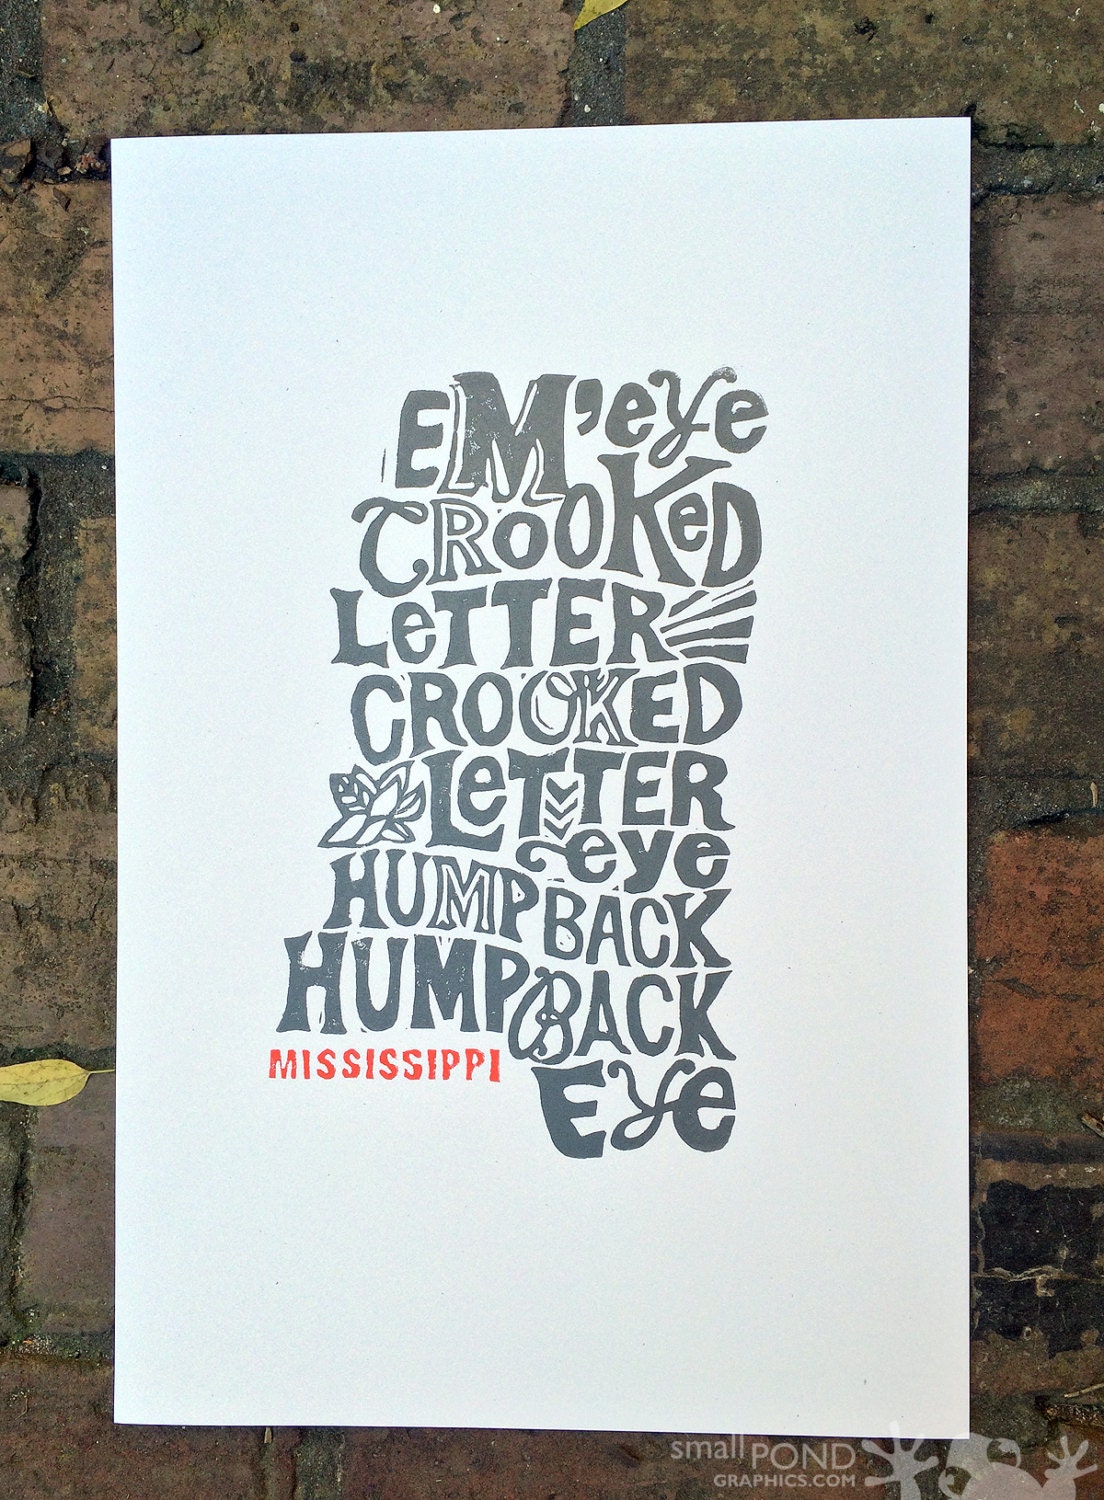 EM'eye
CROOKeD
LeTTER
CROOKED
LeTTER
eye
HUMPBACK
HUMPBACK
MISSISSIPPI
Eye
small POND
GRAPHICS.COM